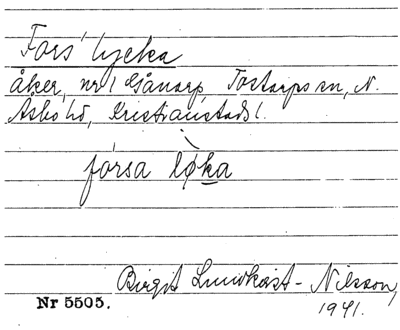 Fors lycka
åker, nr 1 Gånarp, Tåstarps sn, N.
Åsbo hd, Kristianstads l.
fórsa lø̀ka
Birgit Lundkvist-Nilsson,
Nr 5505.
1941.